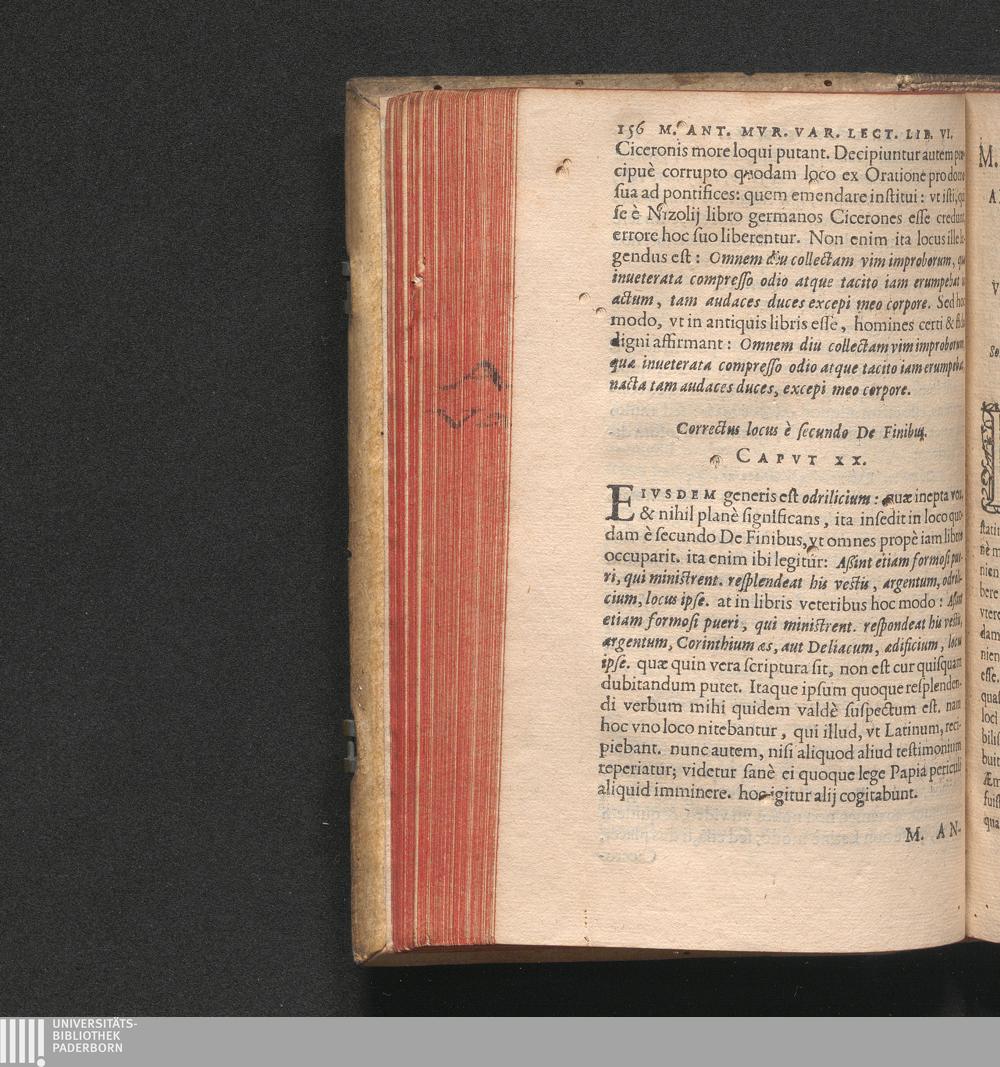 156 M. ANT. MVR. VAR. LECT. LIB. VI.
Ciceronis more loqui putant. Decipiuntur autem
cipuè corrupto quodam loco ex Oratione pro domo
ſua ad pontifices: quem emendare inſtitui: vt iſti, qui
ſe è Nizolij libro germanos Cicerones eſſe credunt,
errore hoc ſuo liberentur. Non enim ita locus ille le-
gendus eſt: Omnem diu collectam vim improborum, quæ
inueterata compreſſo odio atque tacito iam erumpebat
actum, tam audaces duces excepi meo corpore. Sed hoc
modo, vt in antiquis libris eſſe, homines certi & fide
digni affirmant: Omnem diu collectam vim improborum
quæ inueterata compreſſo odio atque tacito iam erumpebat,
nacta tam audaces duces, excepi meo corpore.
Correctus locus è ſecundo De Finibus.
CAPVT XX.
EIVSDEM generis eſt odrilicium: quæ inepta vox,
& nihil planè ſignificans, ita inſedit in loco quo-
dam è ſecundo De Finibus, vt omnes propè iam libros
occuparit. ita enim ibi legitur: Aßint etiam formoſi pue-
ri, qui miniſtrent. reſplendeat his veſtis, argentum, odrili-
cium, locus ipſe. at in libris veteribus hoc modo: Aßint
etiam formoſi pueri, qui miniſtrent. reſpondeat his veſtis,
argentum, Corinthium æs, aut Deliacum, ædificium, locus
ipſe. quæ quin vera ſcriptura ſit, non eſt cur quiſquam
dubitandum putet. Itaque ipſum quoque reſplenden-
di verbum mihi quidem valdè ſuſpectum eſt. nam
hoc vno loco nitebantur, qui illud, vt Latinum, reci-
piebant. nunc autem, niſi aliquod aliud teſtimonium
reperiatur; videtur ſanè ei quoque lege Papia periculi
aliquid imminere. hoc igitur alij cogitabunt.
M. AN-
UNIVERSITÄTS-
BIBLIOTHEK
PADERBORN